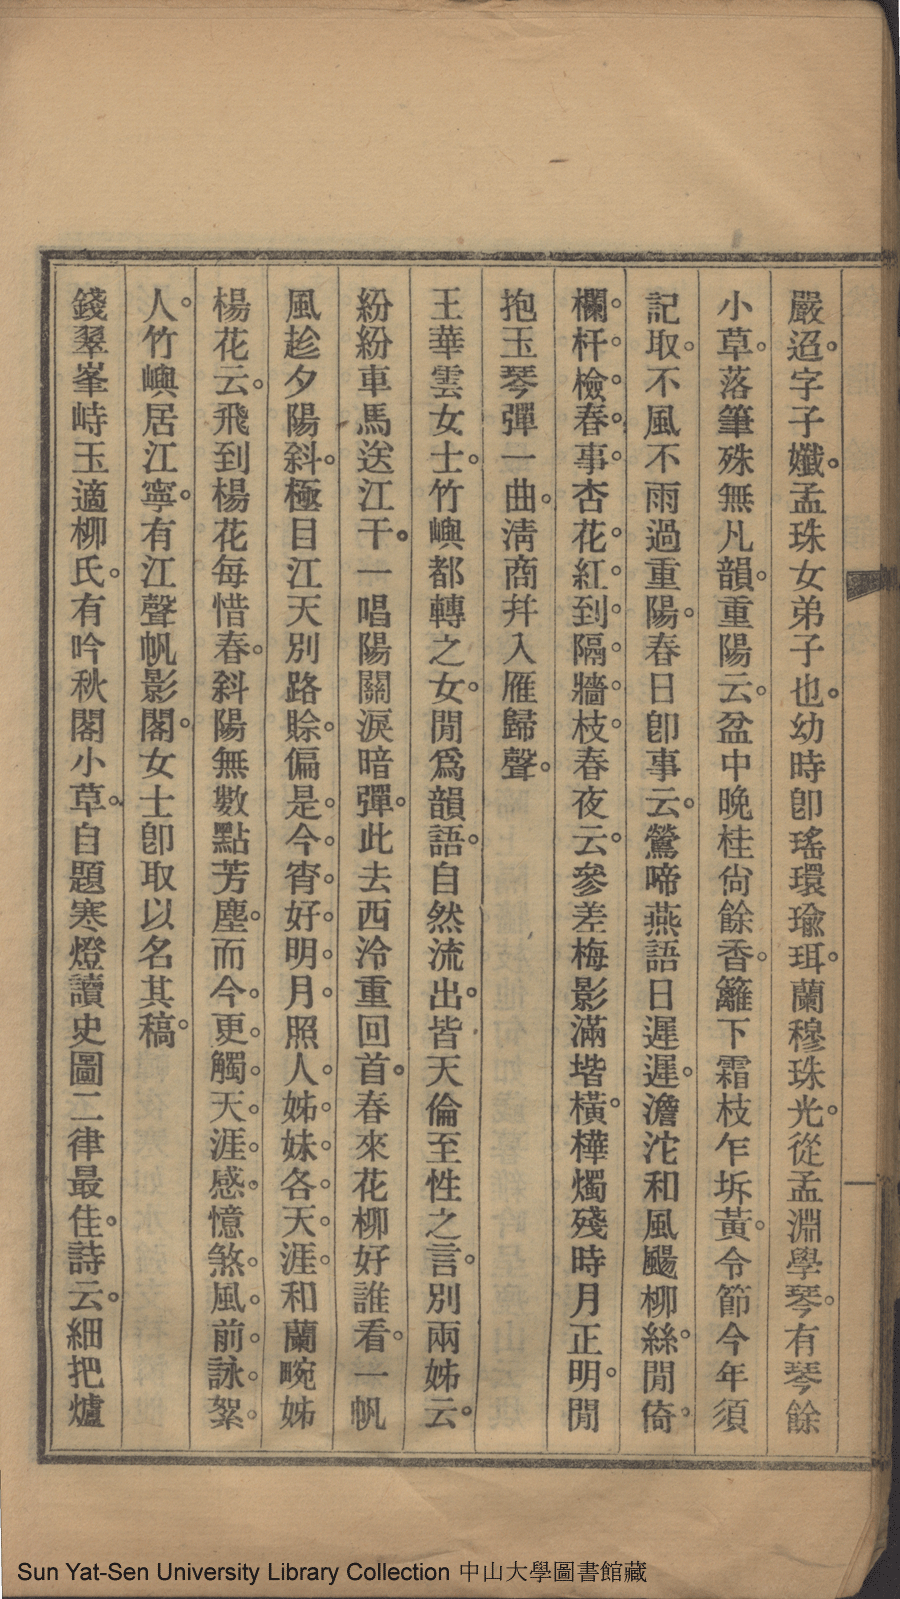 嚴迢。字子孅。孟珠女弟子也。幼時卽瑤環瑜珥。蘭穆珠光。從孟淵學琴。有琴餘
小草。落筆殊無凡韻。重陽云。盆中晚桂尙餘香。籬下霜枝乍坼黃。令節今年須
記取。不風不雨過重陽。春日卽事云。鶯啼燕語日遲遲。澹沱和風颺柳絲。閒倚。
欄。杆。檢。春。事。杏花。紅。到。隔。牆。枝。春夜云。參差梅影滿堦橫。樺燭殘時月正明。閒
抱玉琴彈一曲。淸商幷入雁歸聲。
王華雲女士。竹嶼都轉之女。閒爲韻語。自然流出。皆天倫至性之言。別兩姊云。
紛紛車馬送江干。一唱陽關淚暗彈。此去西泠重回首。春來花柳好誰看。一帆
風趁夕陽斜。極目江天別路賒。偏是。今。宵。好。明。月。照人。姊。妹。各。天。涯。和蘭畹姊
楊花云。飛到楊花每惜春。斜陽無數點芳塵。而今。更。觸。天。涯。感。憶煞。風。前。詠。絮。
人。竹嶼居江寧。有江聲帆影閣。女士卽取以名其稿。
錢翠峯峙玉適柳氏。有吟秋閣小草。自題寒燈讀史圖二律最佳。詩云。細把爐
一
Sun Yat-Sen University Library Collection 中山大學圖書館藏